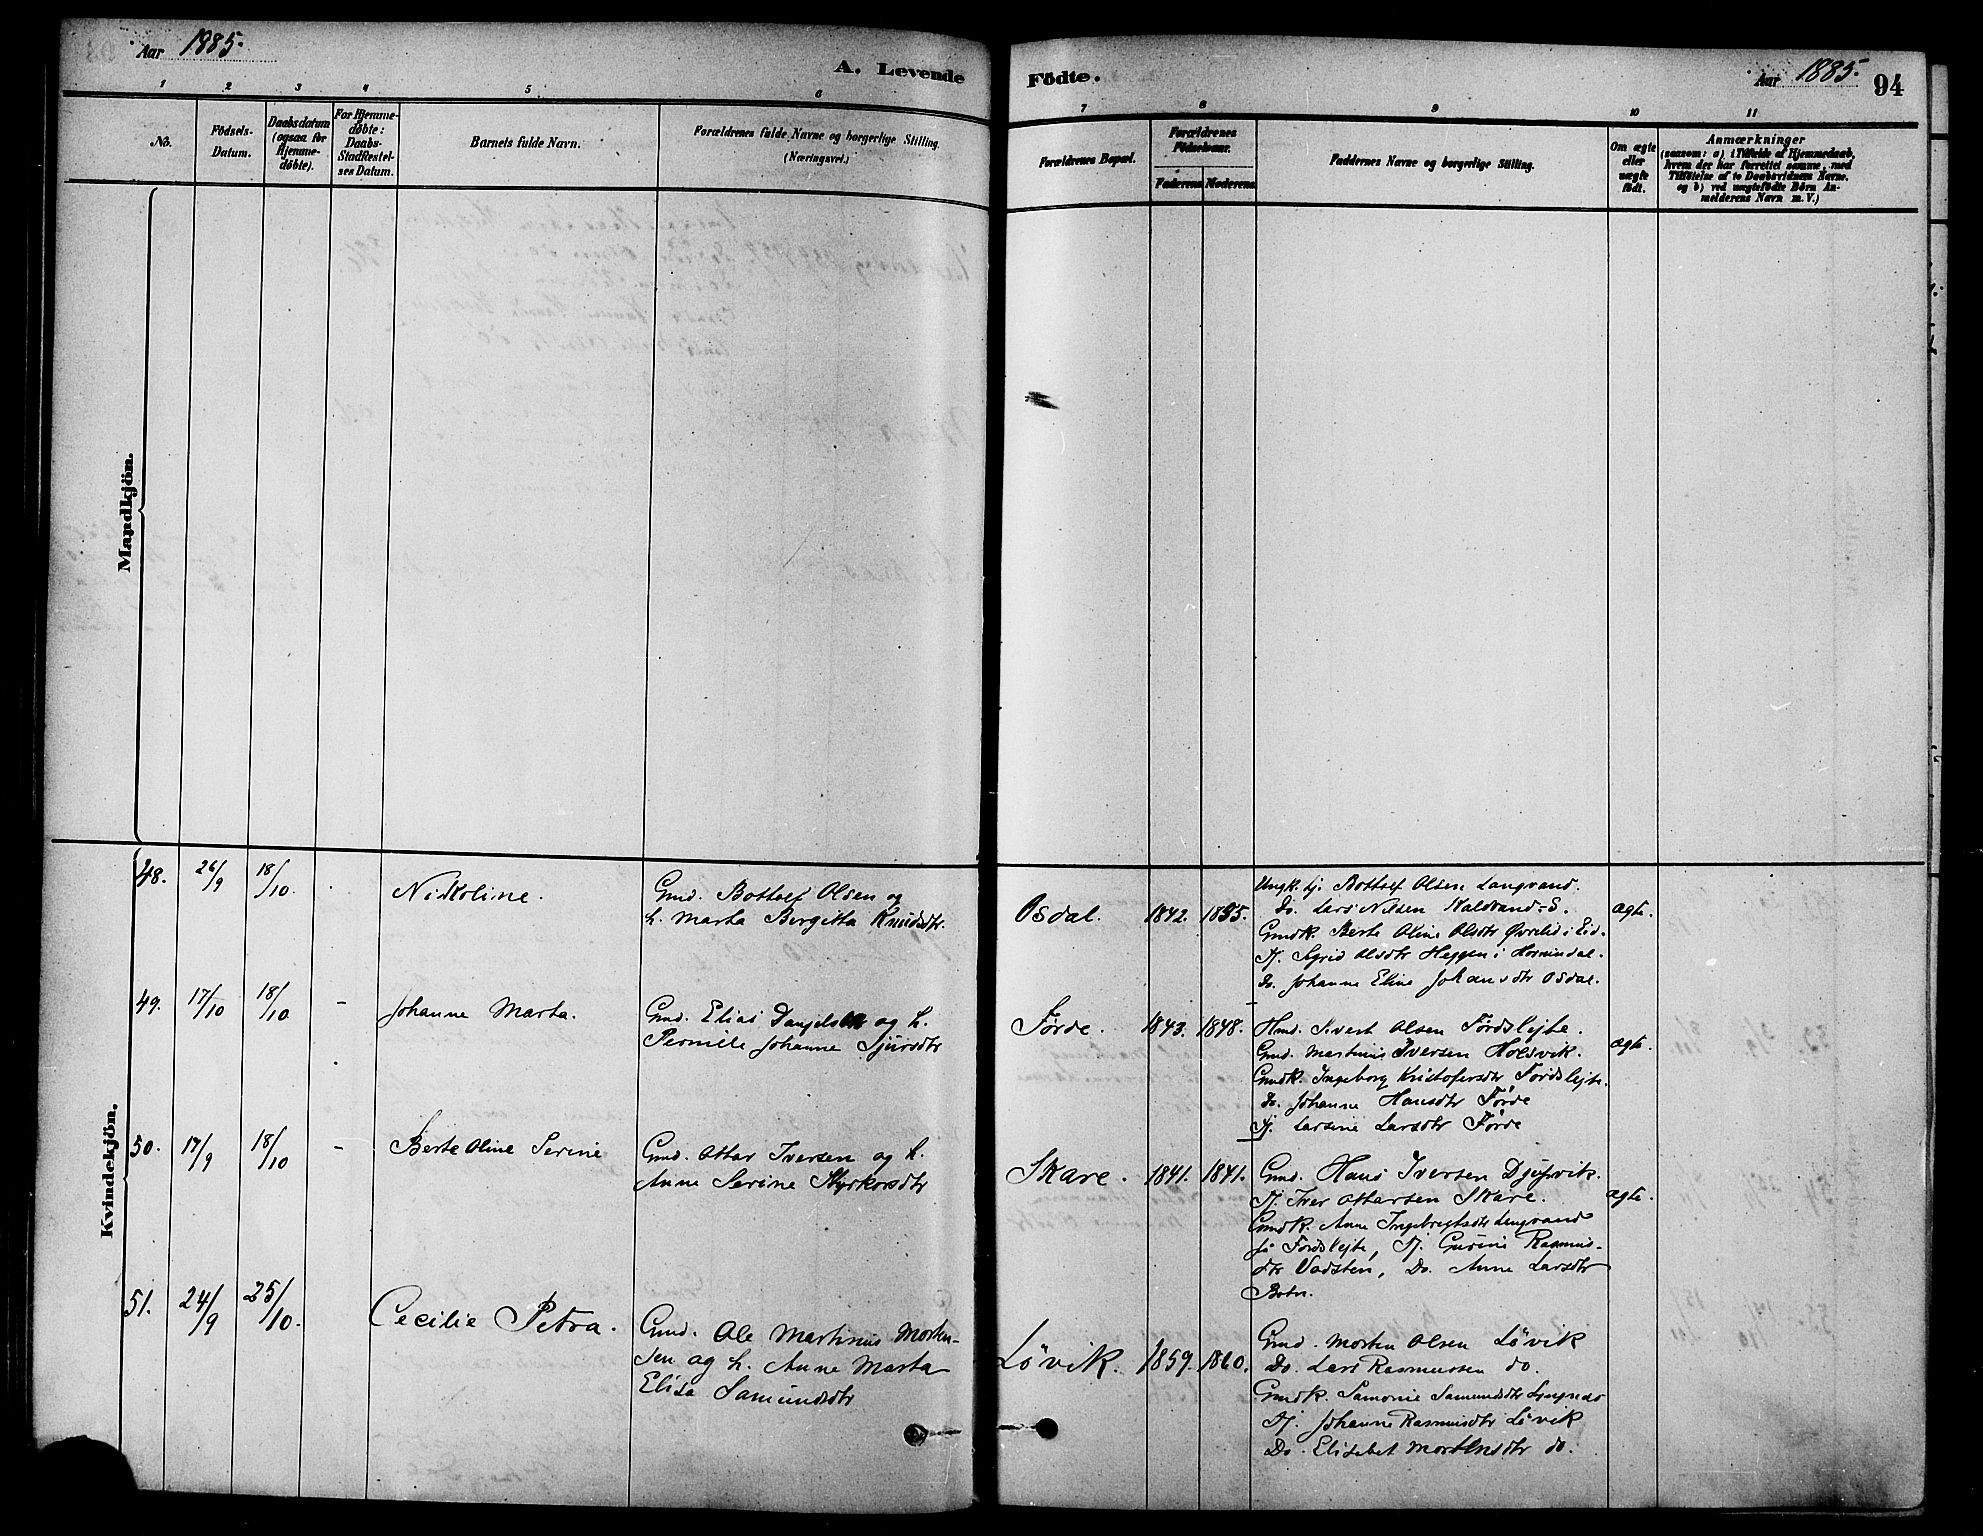 Aar 1885.
A. Levende Födte.
Aar 1885.
94
1 2 3 4 5 6 7 8 9 10 11
No.
Födsels-
Datum.
Daabsdatum
(ogsaa for
Hjemme-
döbte).
For Hjemme-
döbte:
Daabs-
Stadfestel-
ses Datum.
Barnets fulde Navn.
Forældrenes fulde Navne og borgerlige Stilling.
(Næringsvei.)
Forældrenes Bopæl.
Forældrenes
Födselsaar.
Faderens Moderens
Faddernes Navne og borgerlige Stilling.
Om ægte
eller
uægte
födt.
Anmærkninger
(saasom: a) i Tilfælde af Hjemmedaab,
hvem der har forrettet samme, med
Tilföielse af to Daabsvidners Navne.
og b) ved uægtefödte Börn An-
melderens Navn m. V.)
Mandkjön.
Kvindekjön.
48. 26/9 18/10.
Nikoline.
Gmd. Bottolf Olsen og
h. Marta Bergitta Knudsdtr.
Osdal. 1842. 1835.
Ungk. tj. Bottolf Olsen Langvand.
Do. Lars Nilsen Kaldvand-S.
Gmdk. Berte Oline Olsdtr Øvrelid i Eid.
Pj. Sigrid Olsdtr Heggen i Hornindal.
Do. Johanne Eline Johansdtr Osdal.
ægte.
49. 17/10 18/10 -
Johanne Marta.
Gmd. Elias Danjelsen og h.
Pernille Johanne Sjursdtr
Førde. 1843. 1848.
Hmd. Sivert Olsen Førdslejte.
Gmd. Martinus Iversen Holsvik.
Gmdk. Ingeborg Kristofersdtr Førdslejte.
Do. Johanne Hansdtr Førde
Pj. Larsine Larsdtr Førde
ægte.
50. 17/9 18/10 -
Berte Oline Serine
Gmd. Ottar Iversen og h.
Anne Serine Styrkorsdtr
Skare. 1841. 1841.
Gmd. Hans Iversen Djupvik.
Pj. Iver Ottarsen Skare.
Gmdk. Anne Ingebregtsdtr Langvand
på Førdslejte, Pj. Gurine Rasmus-
dtr Vadsten, Do. Anne Larsdtr
Botn.
ægte.
51. 24/9 25/10.
Cecilie Petra.
Gmd. Ole Martinus Morten-
sen og h. Anne Marta
Elisa Samundsdtr
Lövik. 1859. 1860.
Gmd. Morten Olsen Lövik
Do. Lars Rasmussen do.
Gmdk. Samonie Samundsdtr Lyngnes
Pj. Johanne Rasmusdtr Lövik
Do. Elisabet Mortensdtr do.